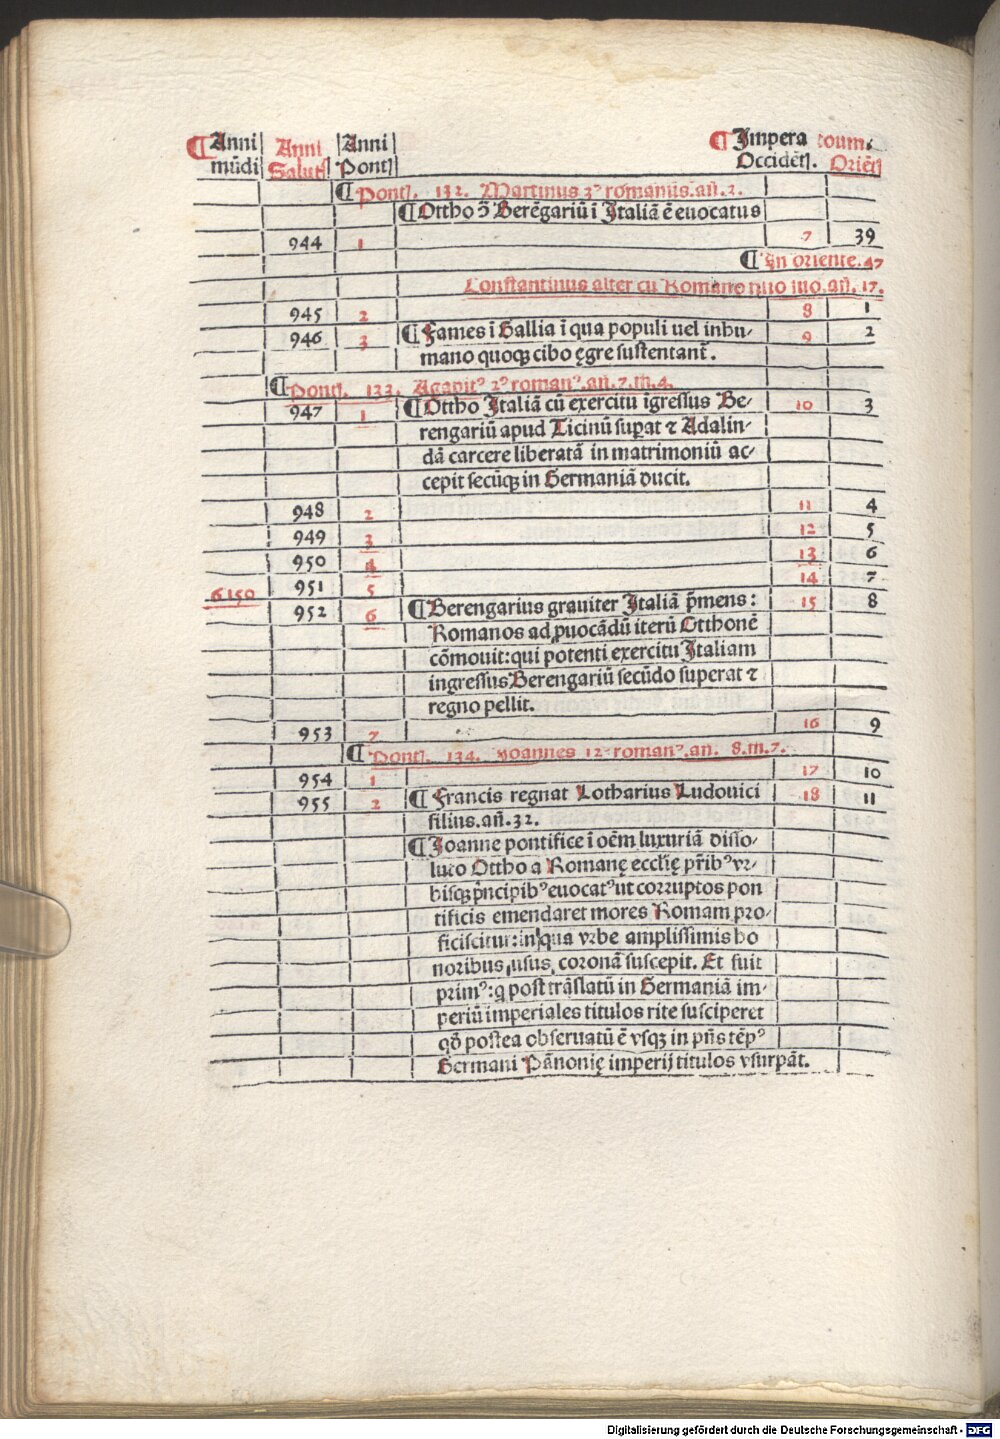 ¶ Anni Anni Anni ¶ Impera toum.
mūdi Salutꝭ Pontꝭ Occidētꝭ. Oriētꝭ
¶ Pontꝭ. 132. Martinus 3ꝰ romanus. añ. 2.
¶ Ottho ɔ̄ Berēgariū ī Italiā ē euocatus
944 1 7 39
¶ In oriente. 47
Constantinus alter cū Romano filio suo. añ. 17.
945 2 8 1
946 3 ¶ Fames ī Gallia ī qua populi uel inhu- 9 2
mano quoqꝫ cibo ęgre sustentanť.
¶ Pontꝭ. 133. Agapitꝰ 2ꝰ romanꝰ. añ. 7. m. 4.
947 1 ¶ Ottho Italiā cū exercitu īgressus Be- 10 3
rengariū apud Ticinū suꝑat ⁊ Adalin-
dā carcere liberatā in matrimoniū ac-
cepit secūqꝫ in Germaniā ducit.
948 2 11 4
949 3 12 5
950 4 13 6
6150 951 5 14 7
952 6 ¶ Berengarius grauiter Italiā p̄mens: 15 8
Romanos ad ꝓuocādū iterū Otthonē
cōmouit: qui potenti exercitu Italiam
ingressus Berengariū secūdo superat ⁊
regno pellit.
953 7 16 9
¶ Pontꝭ. 134. Ioannes 12ꝰ romanꝰ. an. 8. m. 7.
954 1 17 10
955 2 ¶ Francis regnat Lotharius Ludouici 18 11
filius. añ. 32.
¶ Ioanne pontifice ī oēm luxuriā disso-
luto Ottho a Romanę eccl̄ię pr̄ibꝰ vr-
bisqꝫ p̄ncipibꝰ euocatꝰ ut corruptos pon
tificis emendaret mores Romam pro-
ficiscitur: in qua vrbe amplissimis ho
noribus usus coronā suscepit. Et fuit
primꝰ: q post trāslatū in Germaniā im-
periū imperiales titulos rite susciperet
qđ postea obseruatū ē vsqꝫ in pn̄s tēpꝰ
Germani Pānonię imperij titulos vsurpāt.
Digitalisierung gefördert durch die Deutsche Forschungsgemeinschaft - DFG